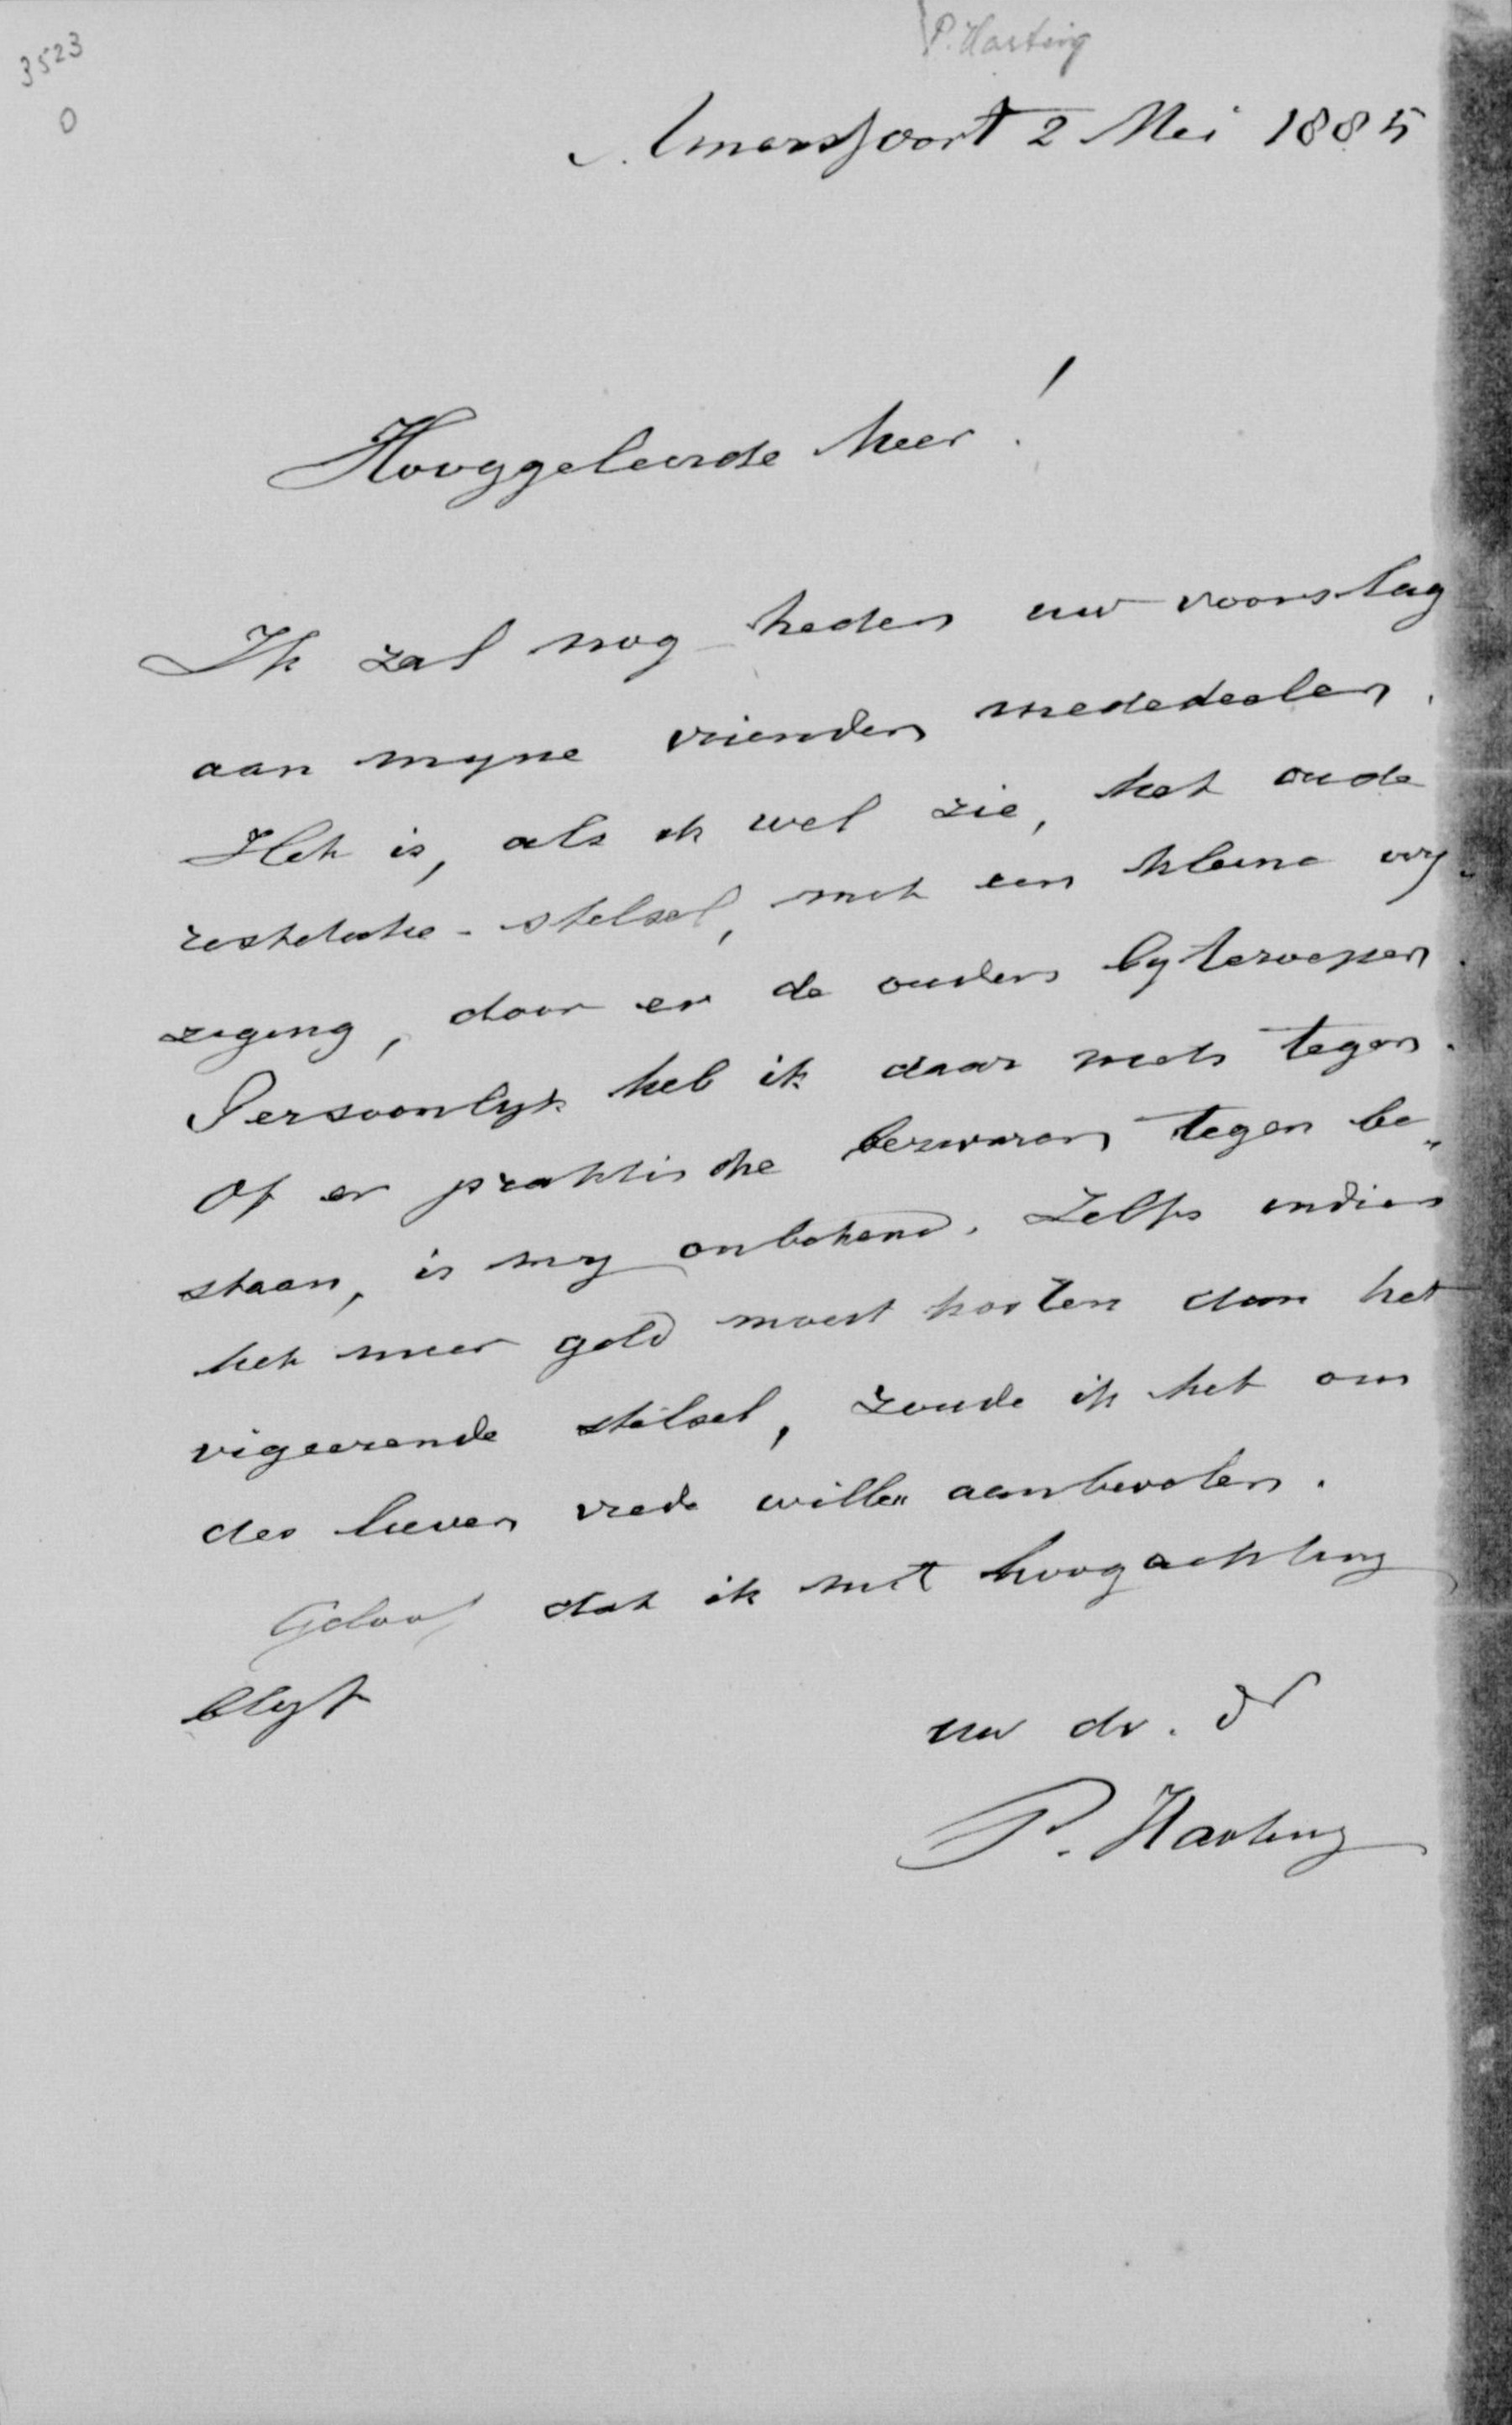 P. Harting
3523
0
Amersfoort 2 Mei 1885
Hooggeleerde heer!
Ik zal nog heden uw voorslag
aan myne vrienden mededeelen.
Het is, als ik wel zie, het oude
restitutie-stelsel, met een kleine wy„
ziging, door er de ouders by te roepen.
Persoonlyk heb ik daar niets tegen.
Of er praktische bezwaren tegen be„
staan, is my onbekend. Zelfs indien
het meer geld moest kosten dan het
vigeerende stelsel, zoude ik het om
des lieven vrede willen aanbevelen.
Geloof dat ik met hoogachting
blyf
uw dv. dr
P. Harting